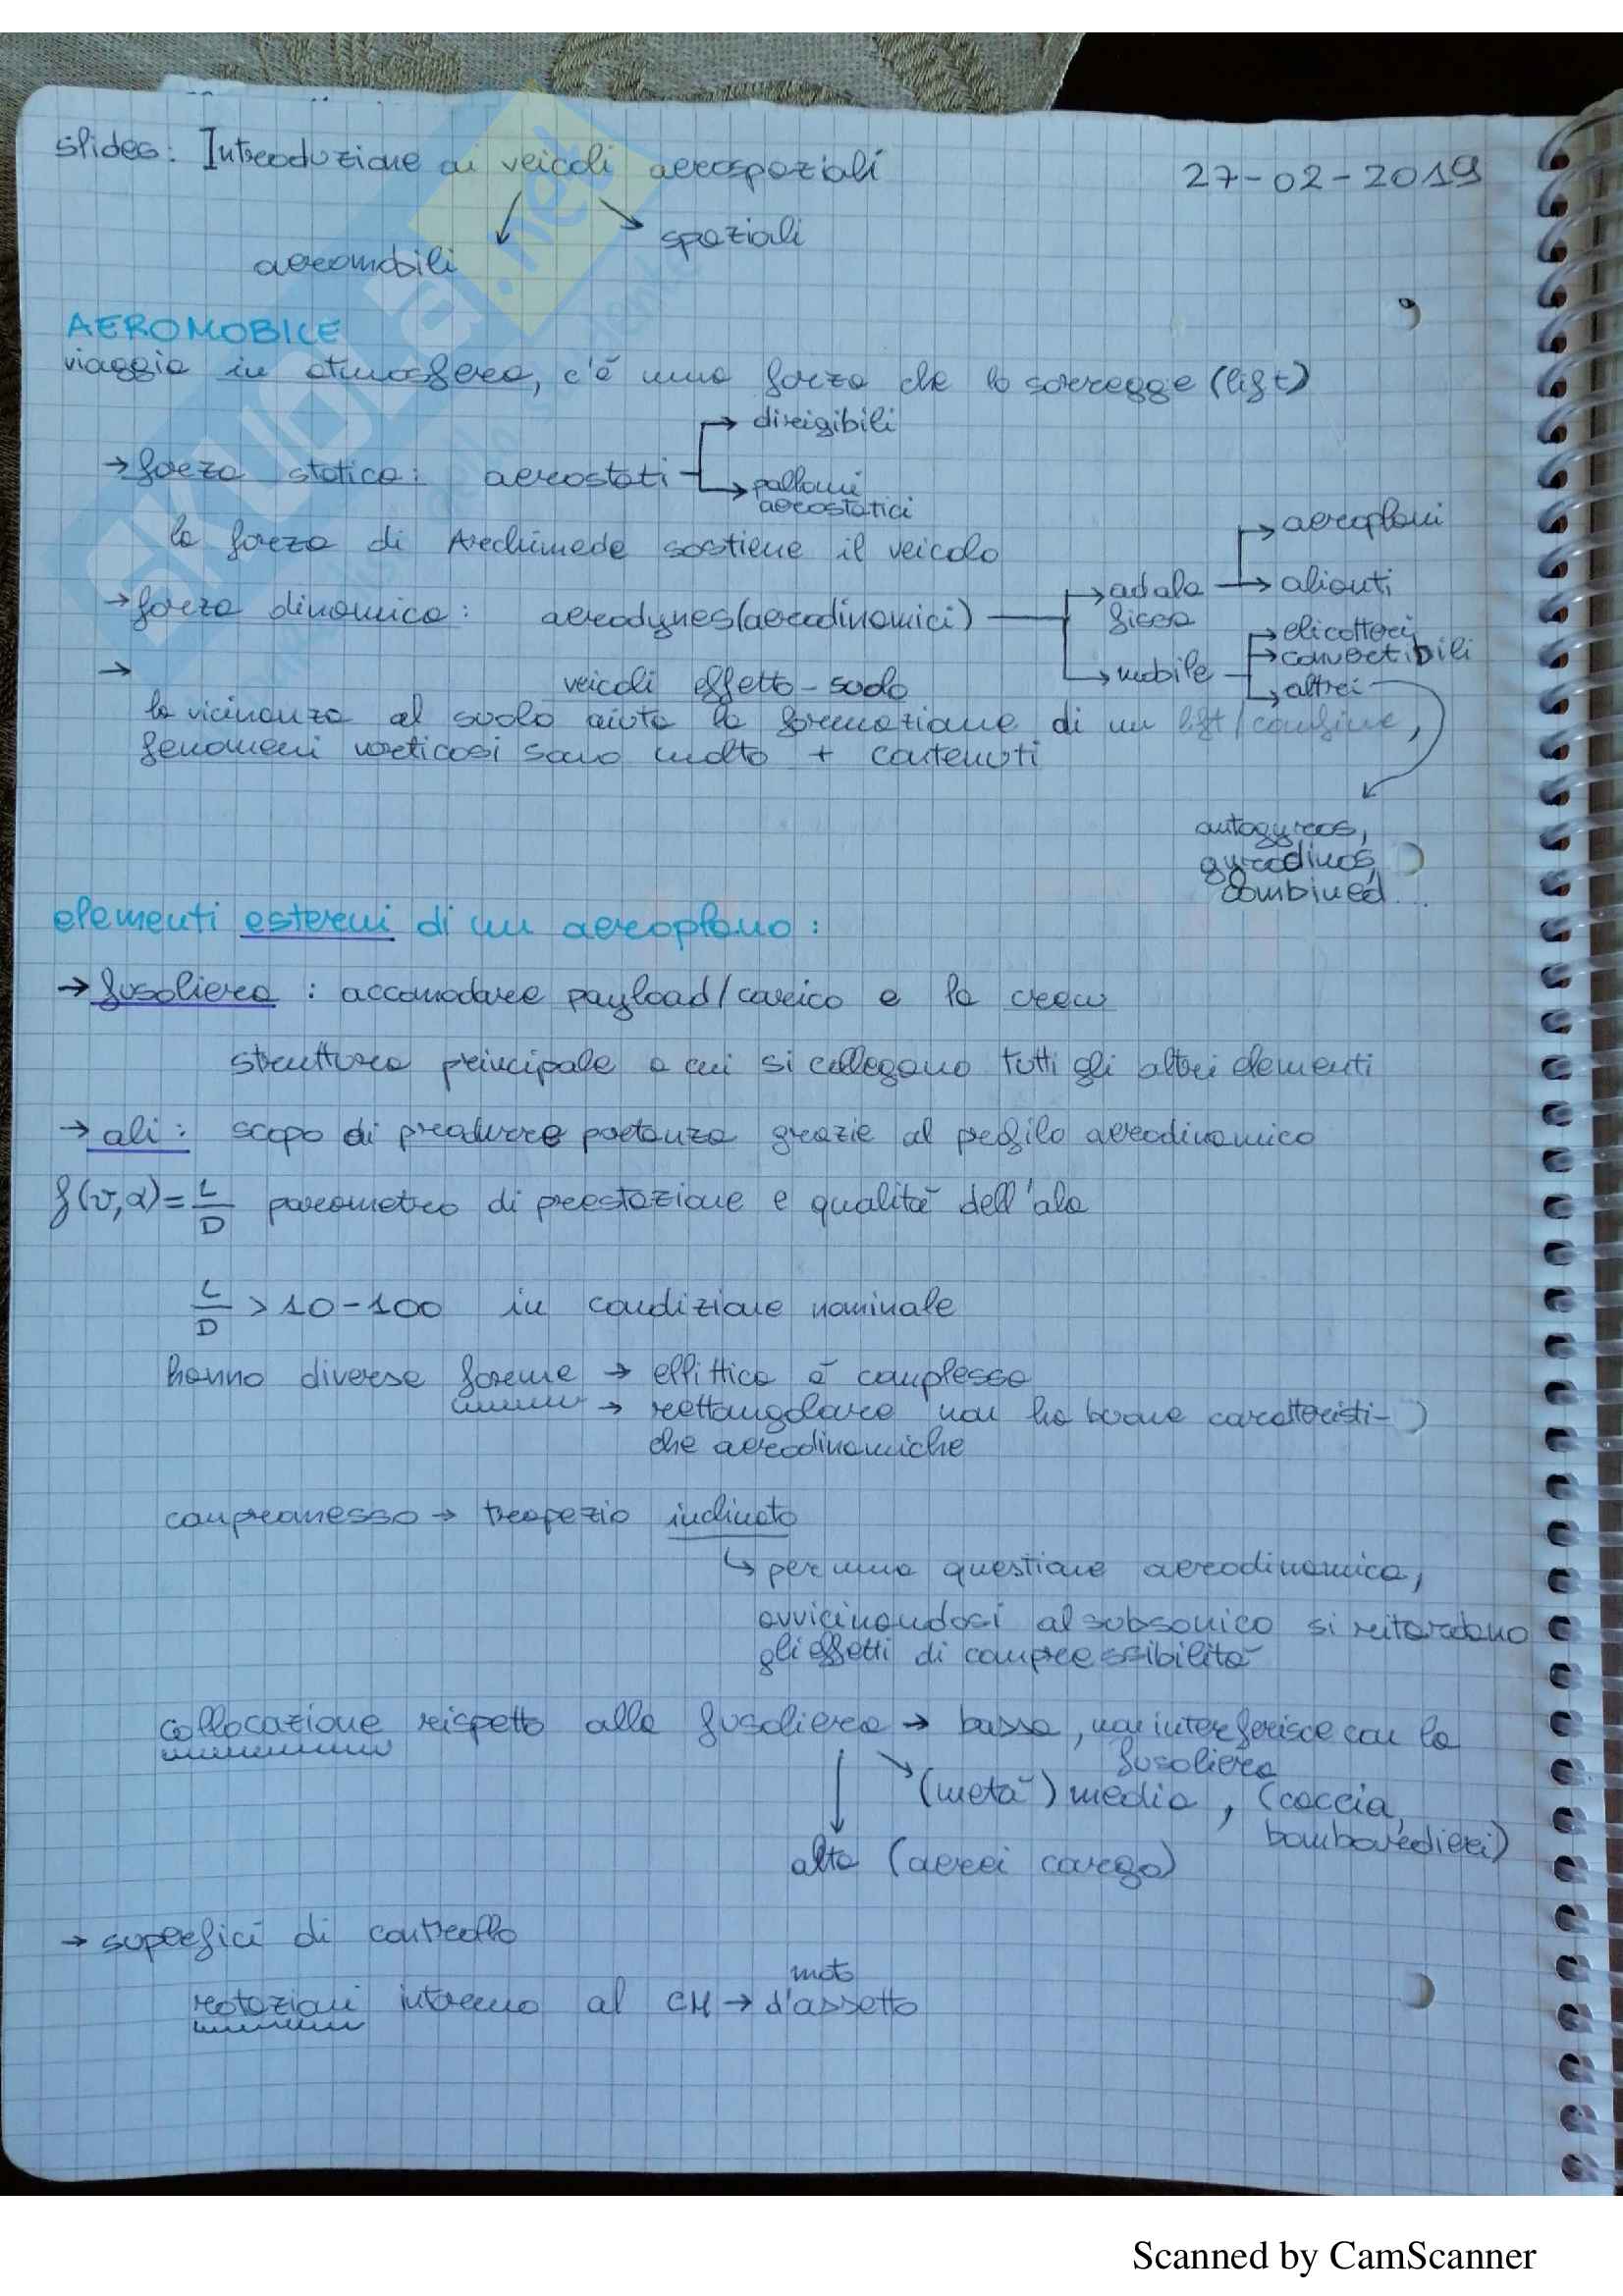 slides: Introduzione ai veicoli aerospaziali 27-02-2019
aeromobili spaziali
AEROMOBILE
viaggia in atmosfera, c'è una forza che lo sorregge (lift)
→ forza statica: aerostati → dirigibili
→ palloni aerostatici
la forza di Archimede sostiene il veicolo
→ forza dinamica: aerodynes (aerodinamici) → ad ala fissa → aeroplani
→ alianti
→ mobile → elicotteri
→ convertibili
→ altri
→ veicoli effetto-suolo
la vicinanza al suolo aiuta la formazione di un lift/confine,
fenomeni vorticosi sono molto + contenuti
autogyros,
gyrodinos,
combined...
elementi esterni di un aeroplano:
→ fusoliera: accomodare payload/carico e la crew
struttura principale a cui si collegano tutti gli altri elementi
→ ali: scopo di produrre portanza grazie al profilo aerodinamico
f(v,α)=L/D parametro di prestazione e qualità dell'ala
L/D >10-100 in condizione nominale
hanno diverse forme → ellittica è complessa
→ rettangolare non ha buone caratteristi-
che aerodinamiche
compromesso → trapezio inclinato
↳ per una questione aerodinamica,
avvicinandosi al subsonico si ritardano
gli effetti di compressibilità
collocazione rispetto alla fusoliera → bassa, non interferisce con la
fusoliera
(metà) media, (caccia,
bombardieri)
alta (aerei cargo)
→ superfici di controllo
rotazioni intorno al CM → moto d'assetto
SKUOLA.net
Scanned by CamScanner